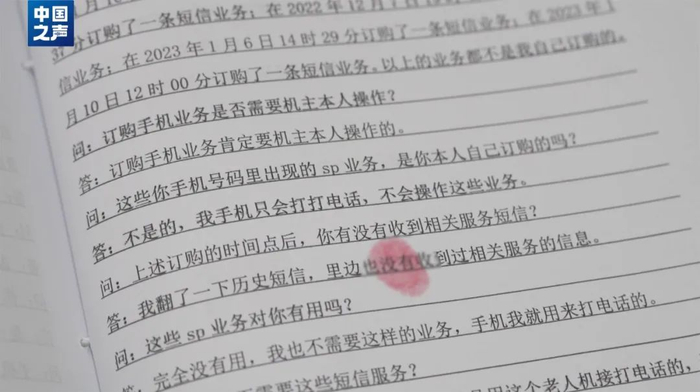 中国之声
37 分订购了一条短信业务；在 2022 年 12 月
信业务；在 2023 年 1 月 6 日 14 时 29 分订购了一条短信业务；在 2023 年 1
月 10 日 12 时 00 分订购了一条短信业务。以上的业务都不是我自己订购的。
问：订购手机业务是否需要机主本人操作？
答：订购手机业务肯定要机主本人操作的。
问：这些你手机号码里出现的 sp 业务，是你本人自己订购的吗？
答：不是的，我手机只会打打电话，不会操作这些业务。
问：上述订购的时间点后，你有没有收到相关服务短信？
答：我翻了一下历史短信，里边也没有收到过相关服务的信息。
问：这些 sp 业务对你有用吗？
答：完全没有用，我也不需要这样的业务，手机我就用来打电话的。
些短信服务？
用这个老人机接打电话的，